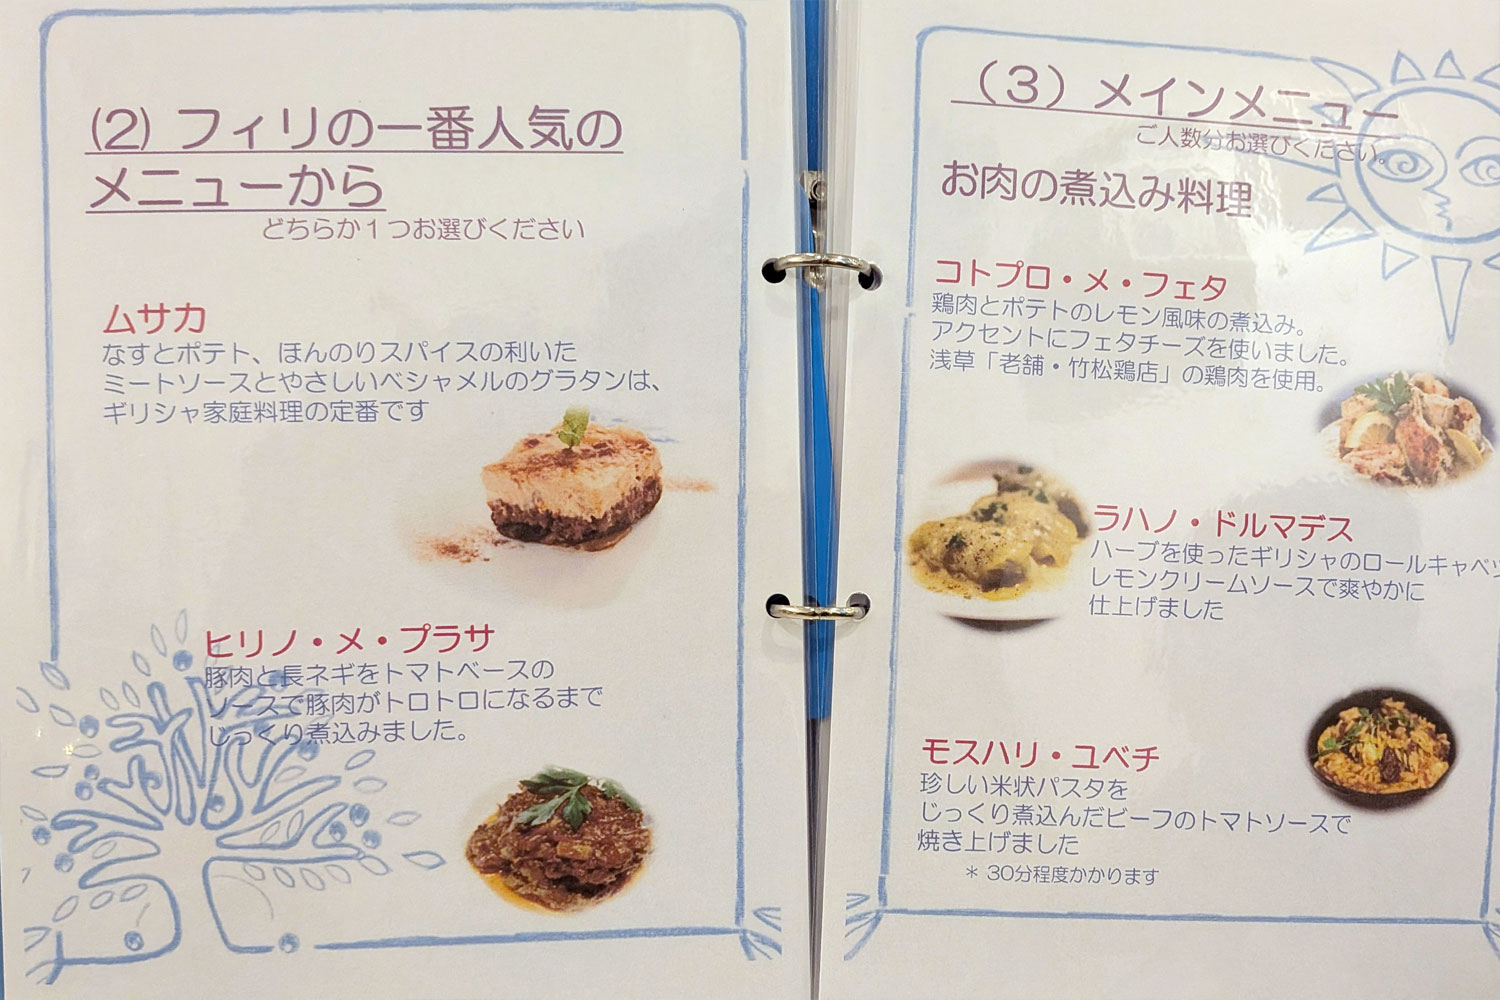 (2) フィリの一番人気の
メニューから
どちらか１つお選びください
ムサカ
なすとポテト、ほんのりスパイスの利いた
ミートソースとやさしいベシャメルのグラタンは、
ギリシャ家庭料理の定番です
ヒリノ・メ・プラサ
豚肉と長ネギをトマトベースの
ソースで豚肉がトロトロになるまで
じっくり煮込みました。
（３）メインメニュー
ご人数分お選びください。
お肉の煮込み料理
コトプロ・メ・フェタ
鶏肉とポテトのレモン風味の煮込み。
アクセントにフェタチーズを使いました。
浅草「老舗・竹松鶏店」の鶏肉を使用。
ラハノ・ドルマデス
ハーブを使ったギリシャのロールキャベツ
レモンクリームソースで爽やかに
仕上げました
モスハリ・ユベチ
珍しい米状パスタを
じっくり煮込んだビーフのトマトソースで
焼き上げました
＊ 30分程度かかります